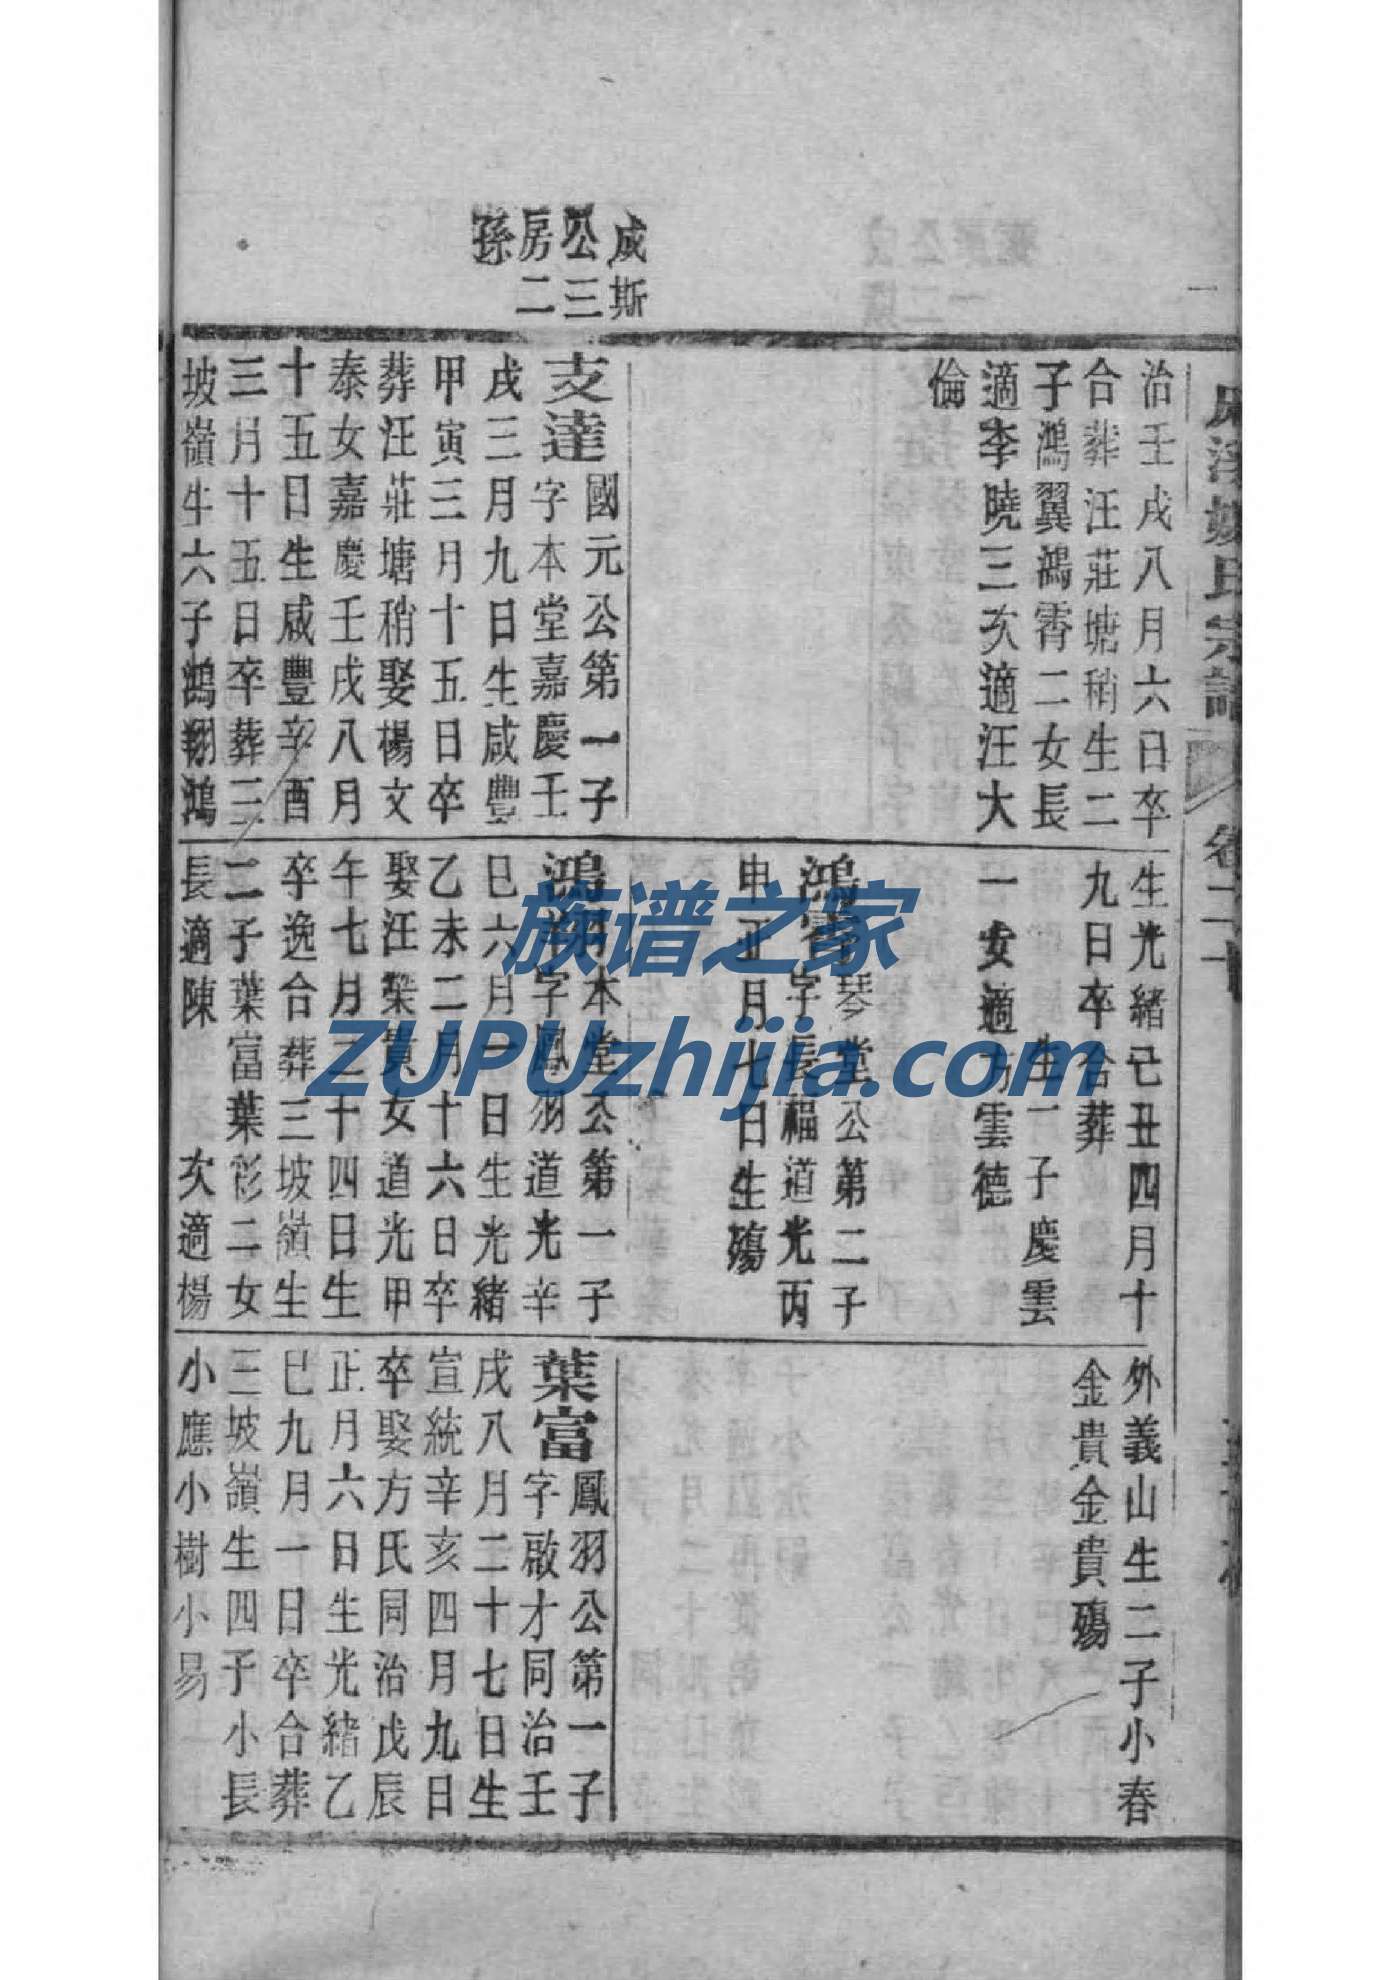 咸斯
公三
房二
孫
治壬戌八月六日卒
合葬汪莊塘稍生二
子鴻翼鴻霄二女長
適李曉三次適汪大
倫
支達國元公第一子
字本堂嘉慶壬
戌三月九日生咸豐
甲寅三月十五日卒
葬汪莊塘稍娶楊文
泰女嘉慶壬戌八月
十五日生咸豐辛酉
三月十五日卒葬三
坡嶺生六子鴻翔鴻
生光緒己丑四月十
九日卒合葬
生一子慶雲
一女適方雲德
鴻霄琴堂公第二子
字長福道光丙
申正月七日生殤
鴻翔本堂公第一子
字鳳羽道光辛
巳六月一日生光緒
乙未二月十六日卒
娶汪榮貫女道光甲
午七月三十四日生
卒逸合葬三坡嶺生
二子葉富葉彩二女
長適陳 次適楊
外義山生二子小春
金貴金貴殤
葉富鳳羽公第一子
字啟才同治壬
戌八月二十七日生
宣統辛亥四月九日
卒娶方氏同治戊辰
正月六日生光緒乙
巳九月一日卒合葬
三坡嶺生四子小長
小應小樹小易
氏宗譜
族谱之家
ZUPUzhijia.com